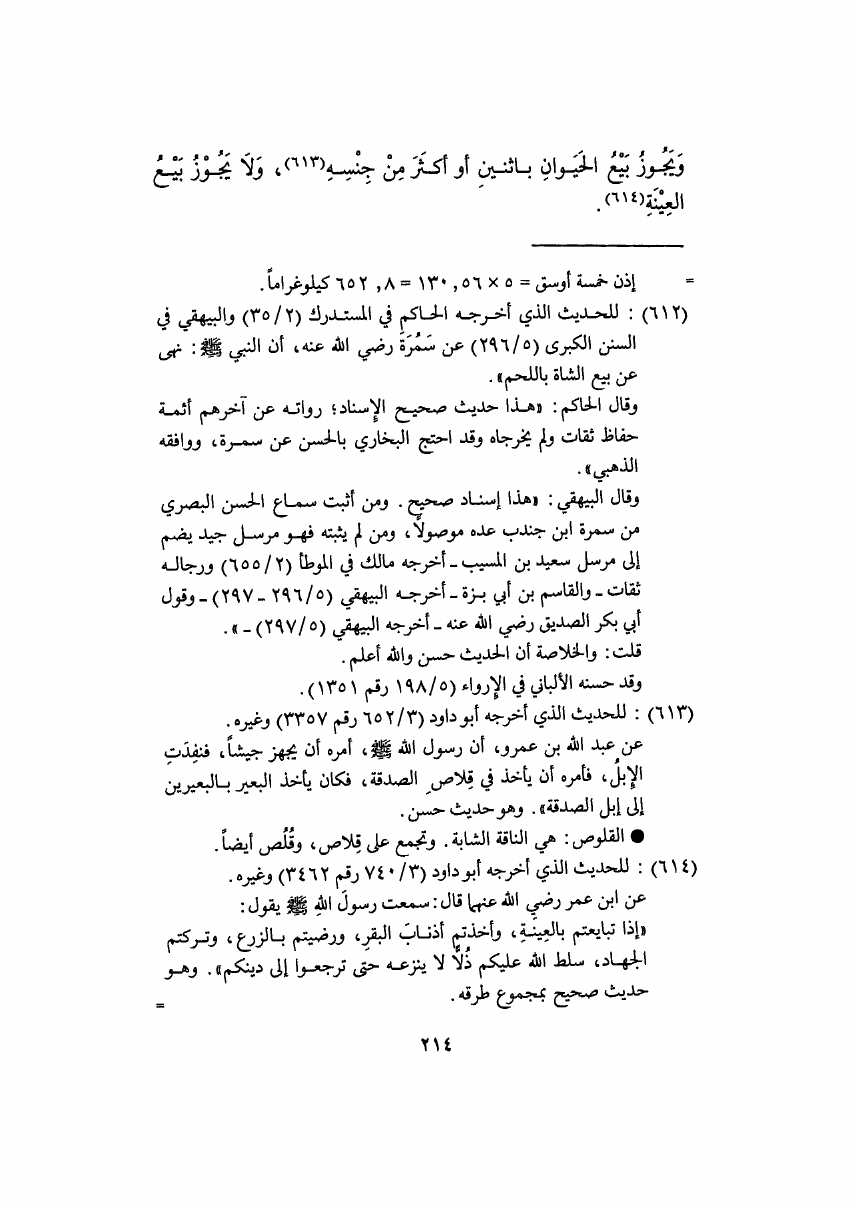 وَيَجُوزُ بَيْعُ الحَيَوانِ باثنينِ أو أكثَرَ مِنْ جِنْسِهِ(٦١٣)، وَلَا يَجُوْزُ بَيْعُ
العِيْنَةِ(٦١٤).
= إذن خمسة أوسق = ٥ × ١٣٠,٥٦ = ٦٥٢,٨ كيلوغراماً.
(٦١٢) : للحديث الذي أخرجه الحاكم في المستدرك (٣٥/٢) والبيهقي في
السنن الكبرى (٢٩٦/٥) عن سَمُرَةَ رضي الله عنه، أن النبي ﷺ: نهى
عن بيع الشاة باللحم».
وقال الحاكم: «هذا حديث صحيح الإسناد؛ رواته عن آخرهم أئمة
حفاظ ثقات ولم يخرجاه وقد احتج البخاري بالحسن عن سمرة، ووافقه
الذهبي».
وقال البيهقي: «هذا إسناد صحيح. ومن أثبت سماع الحسن البصري
من سمرة ابن جندب عده موصولاً، ومن لم يثبته فهو مرسل جيد يضم
إلى مرسل سعيد بن المسيب ـ أخرجه مالك في الموطأ (٦٥٥/٢) ورجاله
ثقات ـ والقاسم بن أبي بزة ـ أخرجه البيهقي (٢٩٦/٥ ـ ٢٩٧) ـ وقول
أبي بكر الصديق رضي الله عنه ـ أخرجه البيهقي (٢٩٧/٥) ـ».
قلت: والخلاصة أن الحديث حسن والله أعلم.
وقد حسنه الألباني في الإرواء (١٩٨/٥ رقم ١٣٥١).
(٦١٣) : للحديث الذي أخرجه أبو داود (٦٥٢/٣ رقم ٣٣٥٧) وغيره.
عن عبد الله بن عمرو، أن رسول الله ﷺ، أمره أن يجهز جيشاً، فنفِدَتِ
الإبلُ، فأمره أن يأخذ في قِلاصِ الصدقة، فكان يأخذ البعير بالبعيرين
إلى إبل الصدقة». وهو حديث حسن.
● القلوص: هي الناقة الشابة. وتجمع على قِلاص، وقُلُص أيضاً.
(٦١٤) : للحديث الذي أخرجه أبو داود (٧٤٠/٣ رقم ٣٤٦٢) وغيره.
عن ابن عمر رضي الله عنهما قال: سمعت رسولَ اللهِ ﷺ يقول:
«إذا تبايعتم بالعِينَةِ، وأخذتم أذنابَ البقرِ، ورضيتم بالزرع، وتركتم
الجهاد، سلط الله عليكم ذُلًّا لا ينزعه حتى ترجعوا إلى دينكم». وهو
حديث صحيح بمجموع طرقه.
=
٢١٤